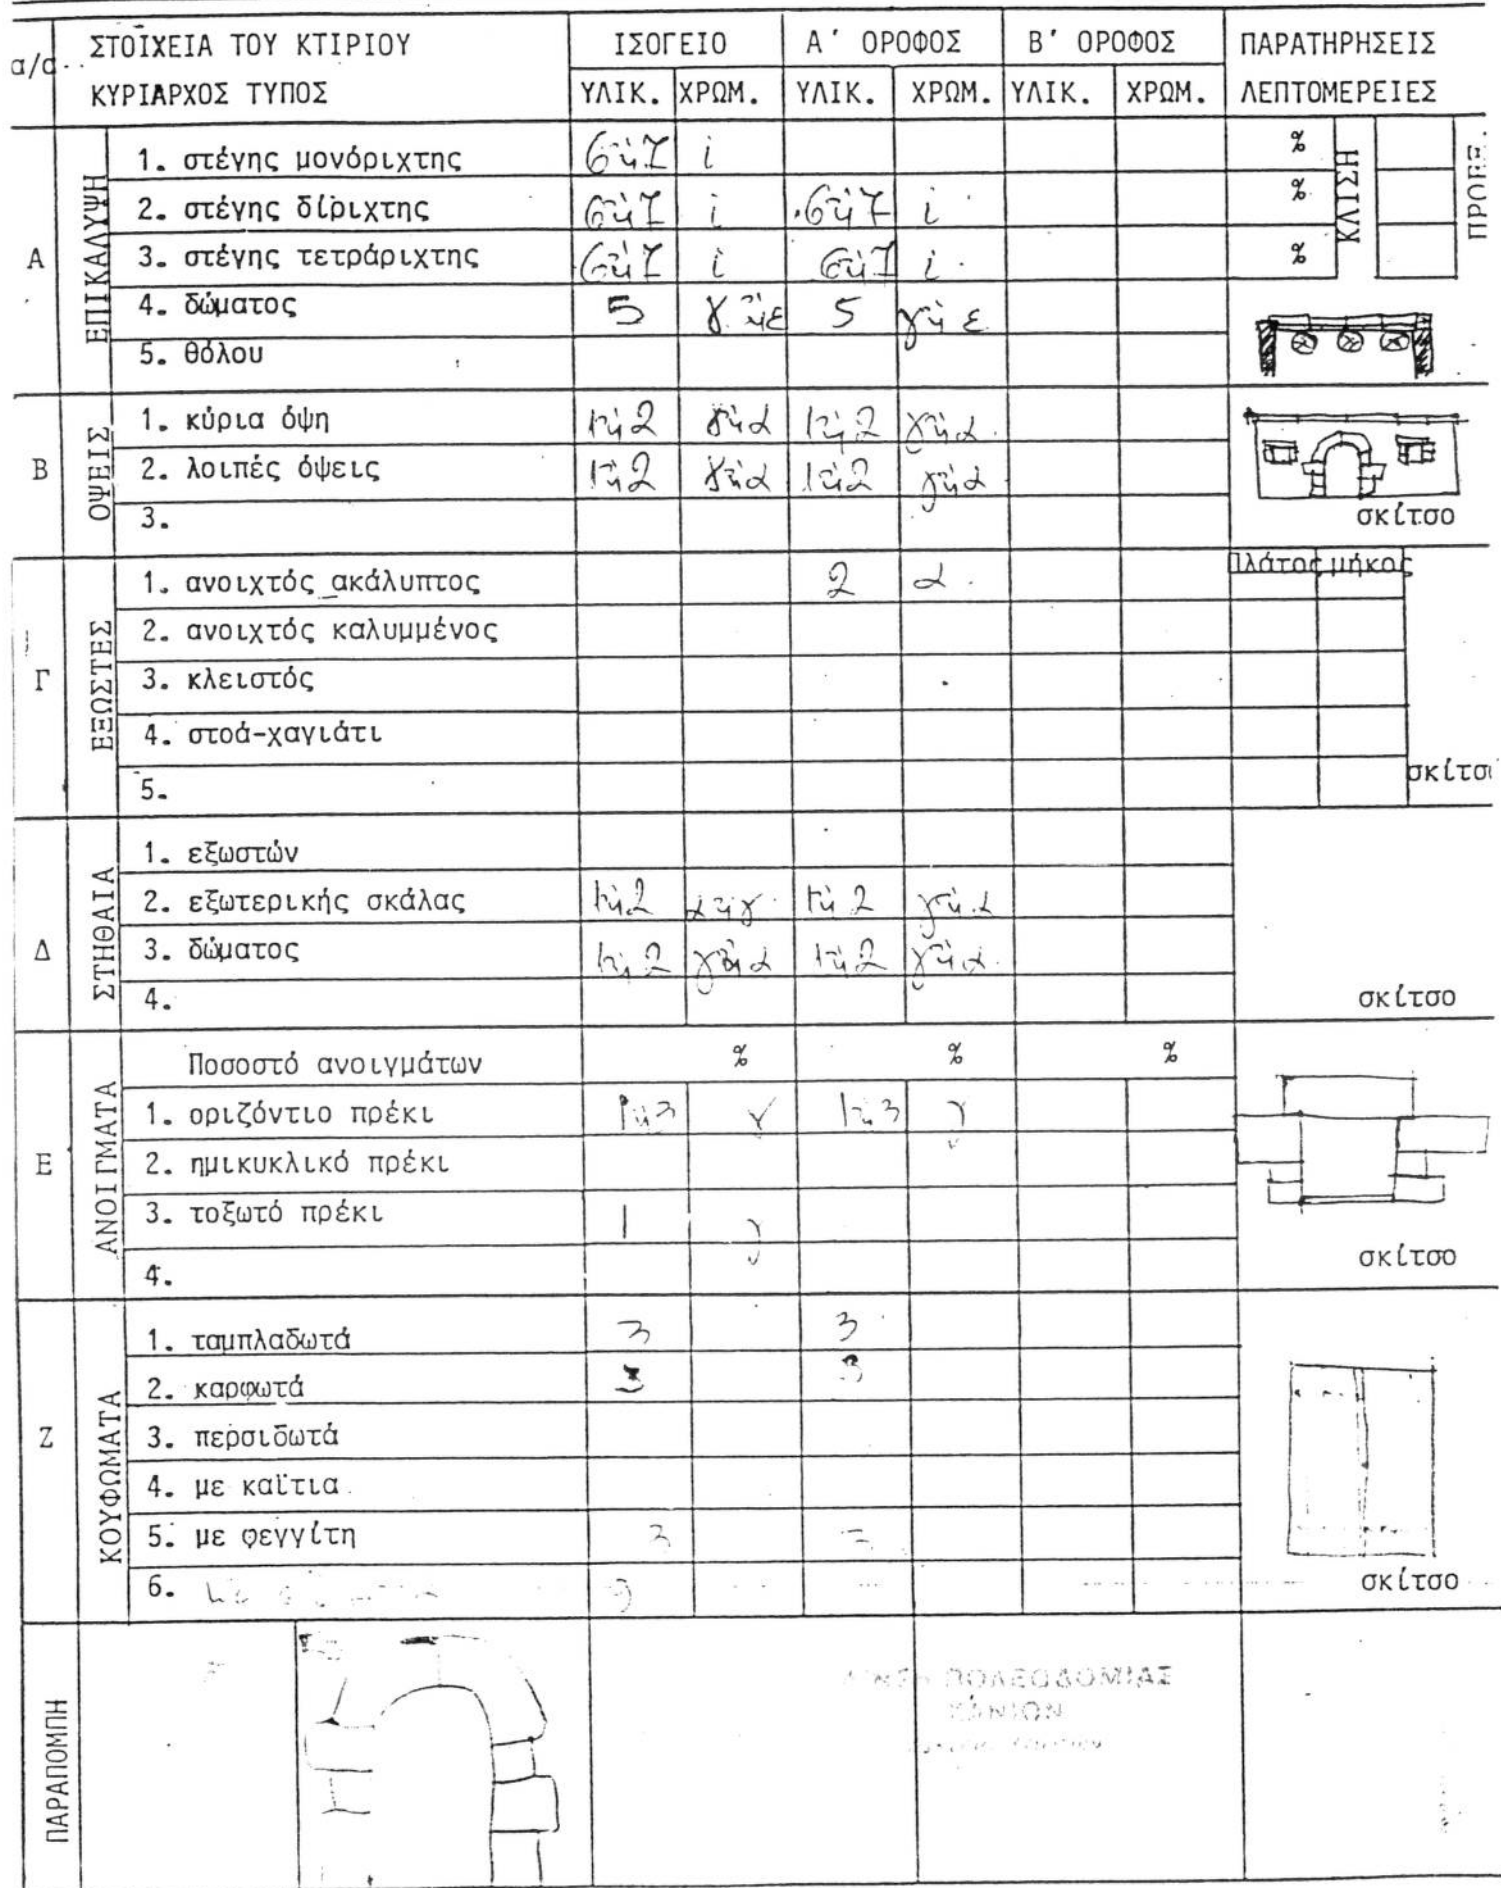 α/α ΣΤΟΙΧΕΙΑ ΤΟΥ ΚΤΙΡΙΟΥ ΙΣΟΓΕΙΟ Α' ΟΡΟΦΟΣ Β' ΟΡΟΦΟΣ ΠΑΡΑΤΗΡΗΣΕΙΣ
ΚΥΡΙΑΡΧΟΣ ΤΥΠΟΣ ΥΛΙΚ. ΧΡΩΜ. ΥΛΙΚ. ΧΡΩΜ. ΥΛΙΚ. ΧΡΩΜ. ΛΕΠΤΟΜΕΡΕΙΕΣ
Α ΕΠΙΚΑΛΥΨΗ
1. στέγης μονόριχτης 6 ή 7 i %
2. στέγης δίριχτης 6 ή 7 i 6 ή 7 i %
3. στέγης τετράριχτης 6 ή 7 i 6 ή 7 i %
ΚΛΙΣΗ
ΠΡΟΕΞ.
4. δώματος 5 γ ή ε 5 γ ή ε
5. θόλου
Β ΟΨΕΙΣ
1. κύρια όψη 1 ή 2 γ ή α 1 ή 2 γ ή α
2. λοιπές όψεις 1 ή 2 γ ή α 1 ή 2 γ ή α
3. σκίτσο
Γ ΕΞΩΣΤΕΣ Πλάτος μήκος
1. ανοιχτός ακάλυπτος 2 α
2. ανοιχτός καλυμμένος
3. κλειστός
4. στοά-χαγιάτι
5. σκίτσο
Δ ΣΤΗΘΑΙΑ
1. εξωστών
2. εξωτερικής σκάλας 1 ή 2 α ή γ 1 ή 2 γ ή α
3. δώματος 1 ή 2 γ ή α 1 ή 2 γ ή α
4. σκίτσο
Ε ΑΝΟΙΓΜΑΤΑ
Ποσοστό ανοιγμάτων % % %
1. οριζόντιο πρέκι 1 ή 3 γ 1 ή 3 γ
2. ημικυκλικό πρέκι
3. τοξωτό πρέκι 1 γ
4. σκίτσο
Ζ ΚΟΥΦΩΜΑΤΑ
1. ταμπλαδωτά 3 3
2. καρφωτά 3 3
3. περσιδωτά
4. με καΐτια
5. με φεγγίτη 3
6. σκίτσο
ΠΑΡΑΠΟΜΠΗ
ΠΟΛΕΟΔΟΜΙΑΣ
ΧΑΝΙΩΝ